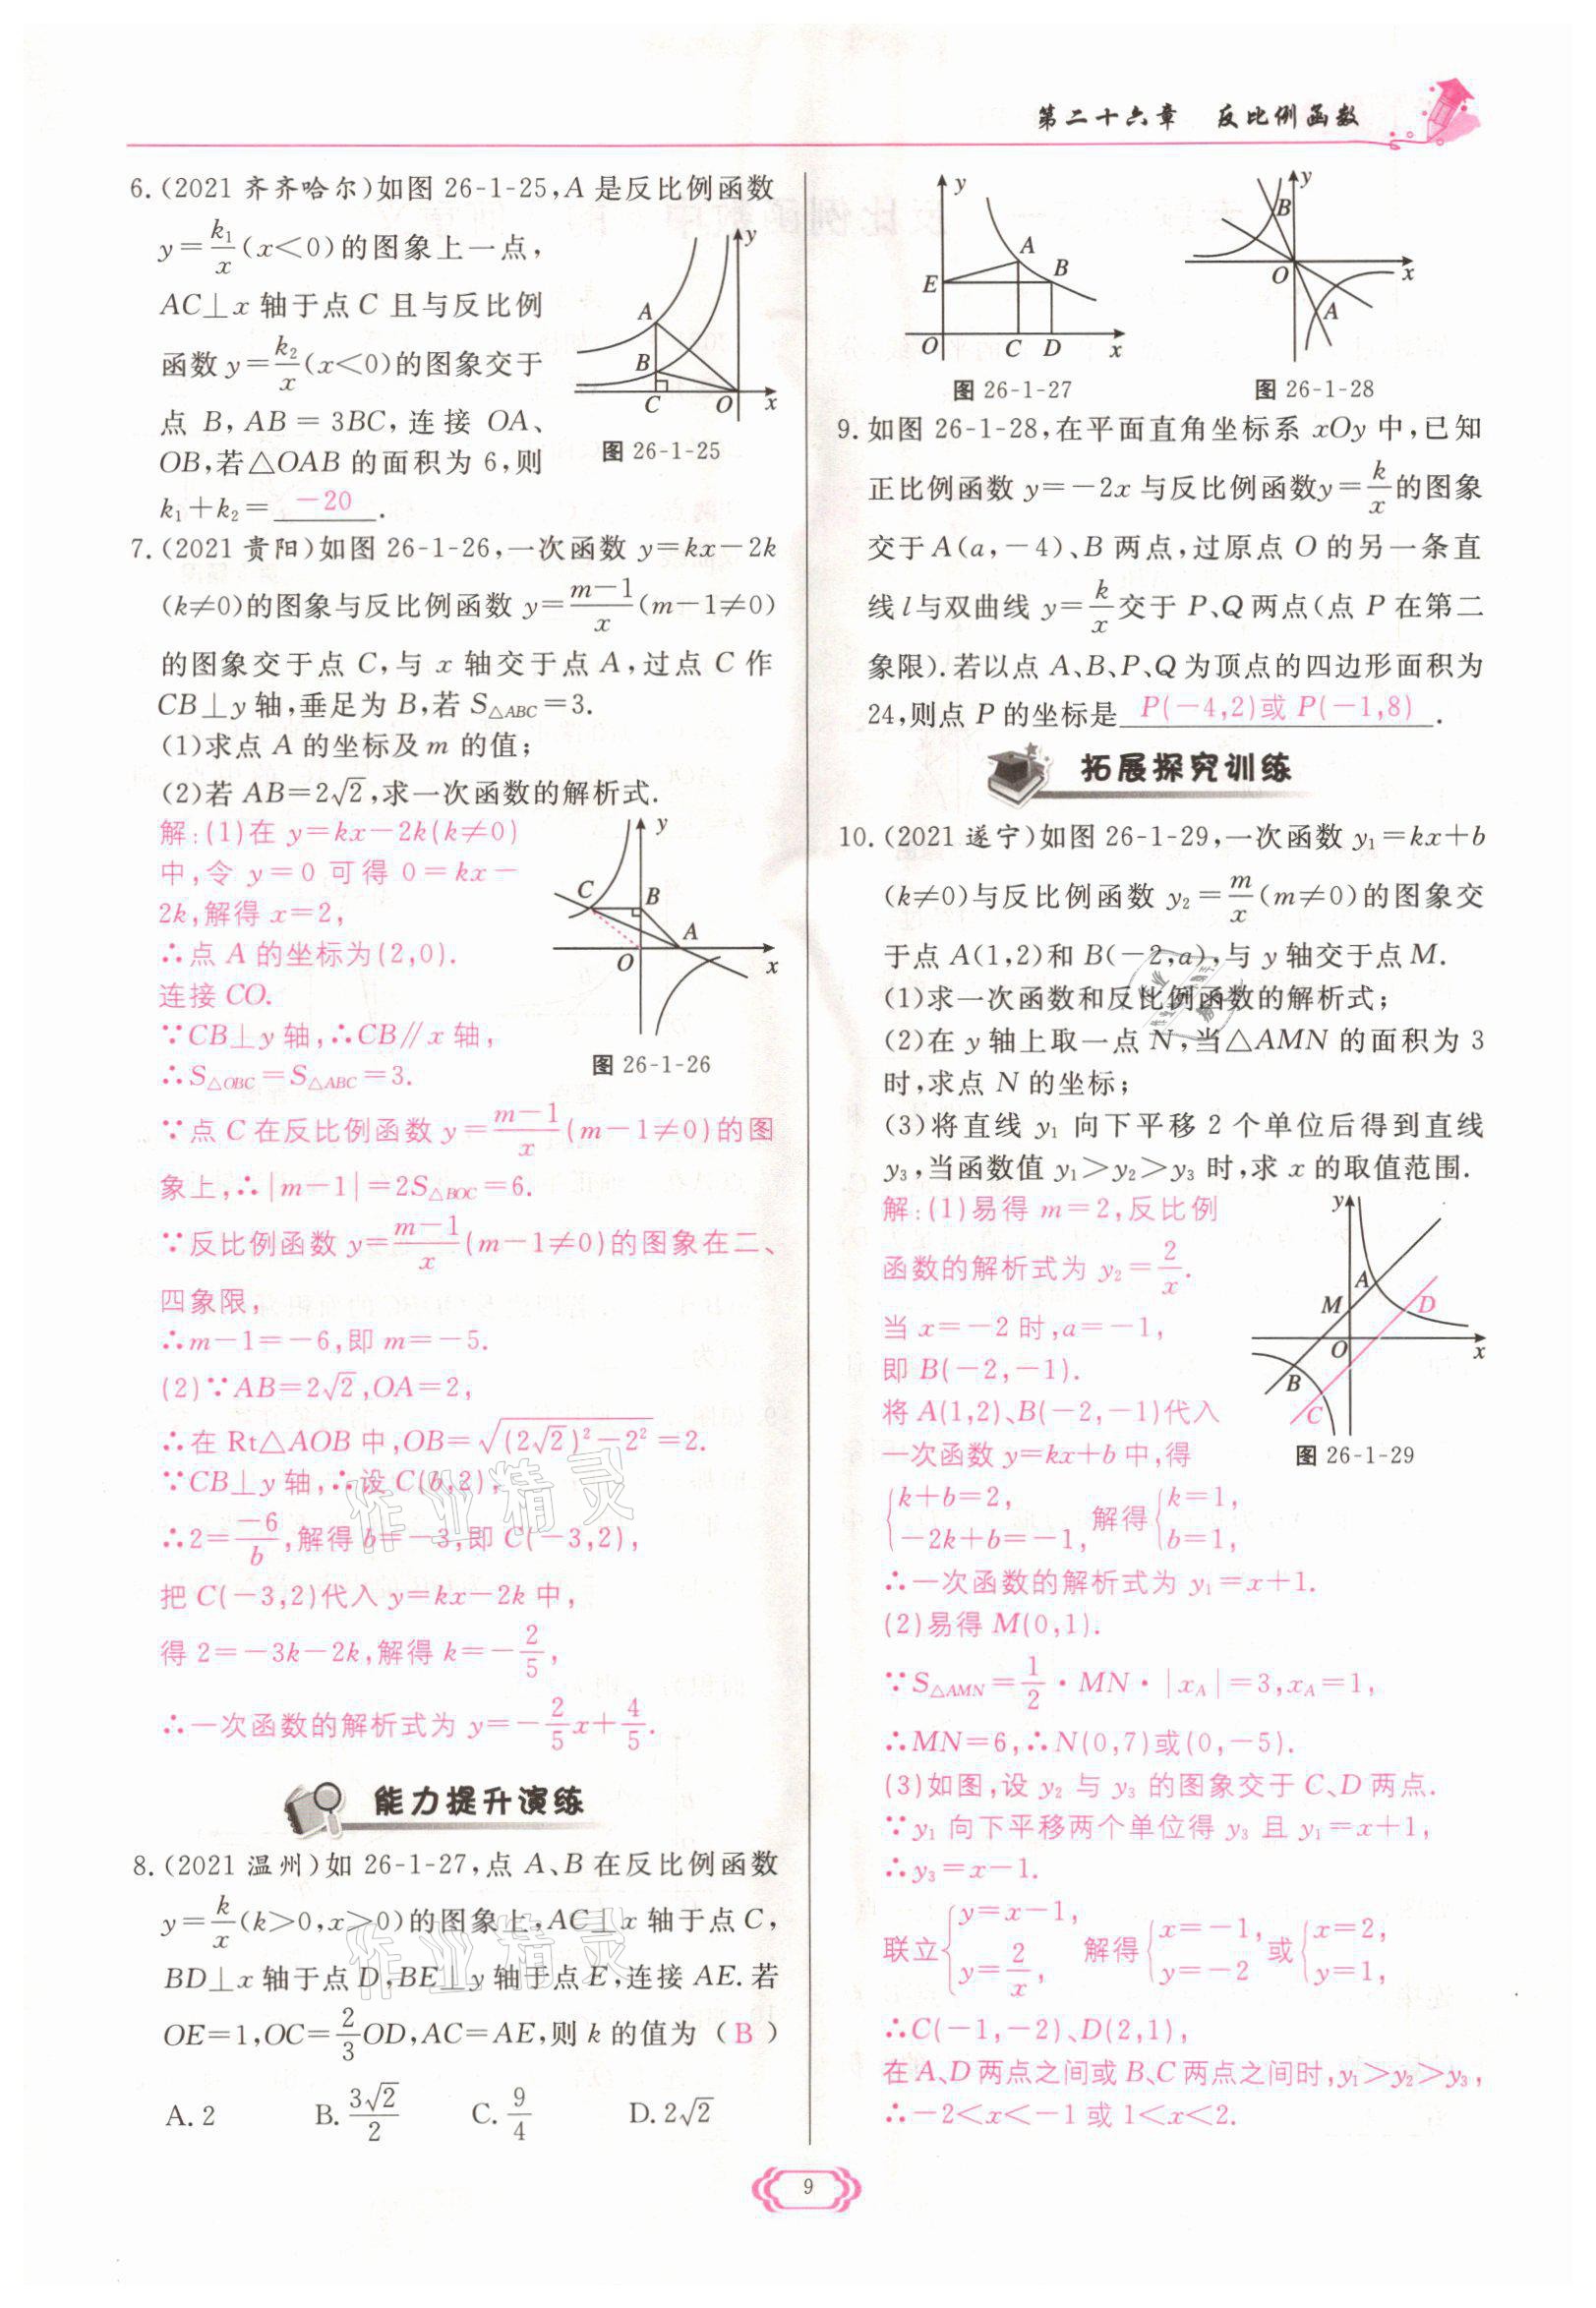 第二十六章 反比例函数
6.(2021 齐齐哈尔)如图 26-1-25,A 是反比例函数
y=k₁/x(x<0)的图象上一点,
AC⊥x 轴于点 C 且与反比例
函数 y=k₂/x(x<0)的图象交于
点 B,AB=3BC,连接 OA、
OB,若△OAB 的面积为 6,则
k₁+k₂=-20.
y
A
B
C
O
x
图 26-1-25
7.(2021 贵阳)如图 26-1-26,一次函数 y=kx-2k
(k≠0)的图象与反比例函数 y=(m-1)/x(m-1≠0)
的图象交于点 C,与 x 轴交于点 A,过点 C 作
CB⊥y 轴,垂足为 B,若 S△ABC=3.
(1)求点 A 的坐标及 m 的值;
(2)若 AB=2√2,求一次函数的解析式.
解:(1)在 y=kx-2k(k≠0)
中,令 y=0 可得 0=kx-
2k,解得 x=2,
∴点 A 的坐标为(2,0).
连接 CO.
∵CB⊥y 轴,∴CB∥x 轴,
∴S△OBC=S△ABC=3.
y
C
B
A
O
x
图 26-1-26
∵点 C 在反比例函数 y=(m-1)/x(m-1≠0)的图
象上,∴|m-1|=2S△BOC=6.
∵反比例函数 y=(m-1)/x(m-1≠0)的图象在二、
四象限,
∴m-1=-6,即 m=-5.
(2)∵AB=2√2,OA=2,
∴在 Rt△AOB 中,OB=√((2√2)²-2²)=2.
∵CB⊥y 轴,∴设 C(b,2),
∴2=-6/b,解得 b=-3,即 C(-3,2),
把 C(-3,2)代入 y=kx-2k 中,
得 2=-3k-2k,解得 k=-2/5,
∴一次函数的解析式为 y=-2/5x+4/5.
能力提升演练
8.(2021 温州)如 26-1-27,点 A、B 在反比例函数
y=k/x(k>0,x>0)的图象上,AC⊥x 轴于点 C,
BD⊥x 轴于点 D,BE⊥y 轴于点 E,连接 AE.若
OE=1,OC=2/3OD,AC=AE,则 k 的值为(B)
A.2 B.3√2/2 C.9/4 D.2√2
y
A
B
E
O
C
D
x
图 26-1-27
y
B
O
x
A
图 26-1-28
9.如图 26-1-28,在平面直角坐标系 xOy 中,已知
正比例函数 y=-2x 与反比例函数y=k/x的图象
交于A(a,-4)、B 两点,过原点 O 的另一条直
线 l 与双曲线 y=k/x交于 P、Q 两点(点 P 在第二
象限).若以点 A、B、P、Q 为顶点的四边形面积为
24,则点 P 的坐标是P(-4,2)或 P(-1,8).
拓展探究训练
10.(2021 遂宁)如图 26-1-29,一次函数 y₁=kx+b
(k≠0)与反比例函数 y₂=m/x(m≠0)的图象交
于点 A(1,2)和 B(-2,a),与 y 轴交于点 M.
(1)求一次函数和反比例函数的解析式;
(2)在 y 轴上取一点 N,当△AMN 的面积为 3
时,求点 N 的坐标;
(3)将直线 y₁ 向下平移 2 个单位后得到直线
y₃,当函数值 y₁>y₂>y₃ 时,求 x 的取值范围.
解:(1)易得 m=2,反比例
函数的解析式为 y₂=2/x.
当 x=-2 时,a=-1,
即 B(-2,-1).
将 A(1,2)、B(-2,-1)代入
一次函数 y=kx+b 中,得
y
A
M
D
O
x
B
C
图 26-1-29
{k+b=2, -2k+b=-1, 解得{k=1, b=1,
∴一次函数的解析式为 y₁=x+1.
(2)易得 M(0,1).
∵S△AMN=1/2·MN·|xA|=3,xA=1,
∴MN=6,∴N(0,7)或(0,-5).
(3)如图,设 y₂ 与 y₃ 的图象交于 C、D 两点.
∵y₁ 向下平移两个单位得 y₃ 且 y₁=x+1,
∴y₃=x-1.
联立{y=x-1, y=2/x, 解得{x=-1, y=-2 或{x=2, y=1,
∴C(-1,-2)、D(2,1),
在 A、D 两点之间或 B、C 两点之间时,y₁>y₂>y₃,
∴-2<x<-1 或 1<x<2.
作业精灵
作业精灵
9